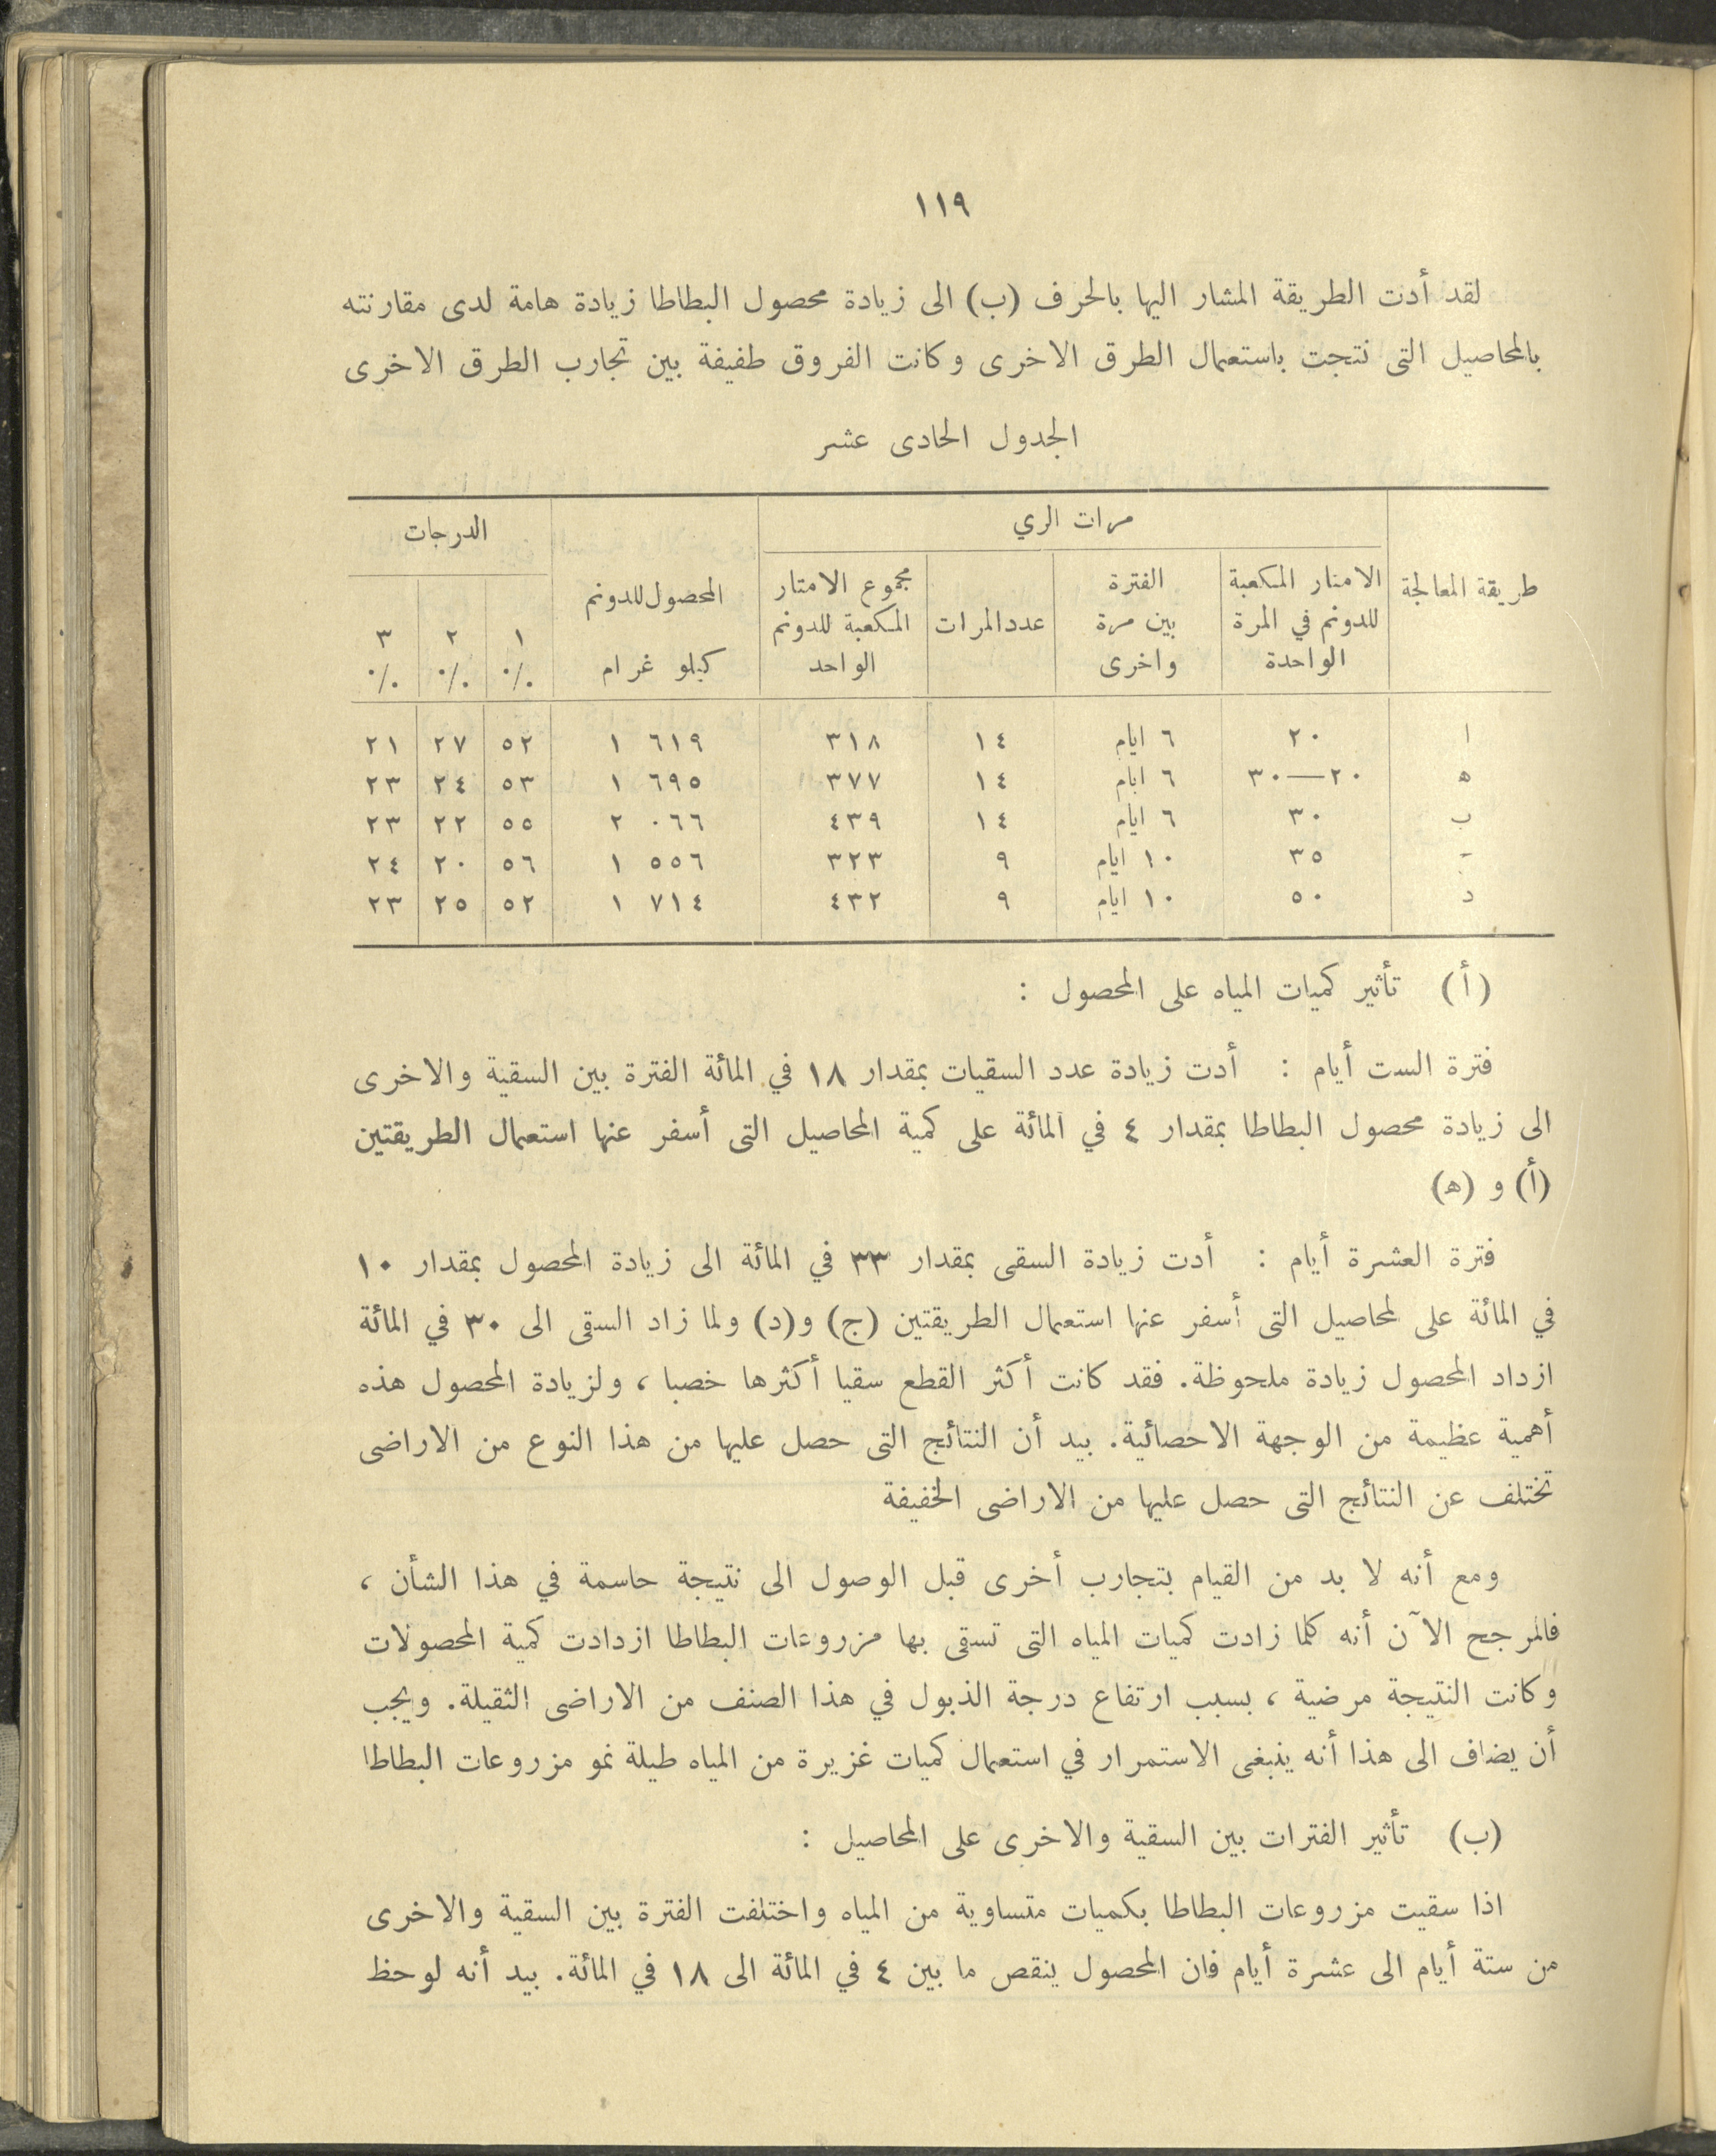 ١١٩
لقد أدت الطريقة المشار اليها بالحرف (ب) الى زيادة محصول البطاطا زيادة هامة لدى مقارنته
بالمحاصيل التى نتجت باستعمال الطرق الاخرى وكانت الفروق طفيفة بين تجارب الطرق الاخرى
الجدول الحادى عشر
طريقة المعالجة مرات الري المحصول للدونم الدرجات
الامتار المكعبة الفترة عدد المرات مجموع الامتار
للدونم في المرة بين مرة المكعبة للدونم ١ ٢ ٣
الواحدة واخرى الواحد كيلو غرام ٪ ٪ ٪
ا ٢٠ ٦ ايام ١٤ ٣١٨ ١ ٦١٩ ٥٢ ٢٧ ٢١
ه ٢٠—٣٠ ٦ ايام ١٤ ٣٧٧ ١ ٦٩٥ ٥٣ ٢٤ ٢٣
ب ٣٠ ٦ ايام ١٤ ٤٣٩ ٢ ٠٦٦ ٥٥ ٢٢ ٢٣
٣٥ ١٠ ايام ٩ ٣٢٣ ١ ٥٥٦ ٥٦ ٢٠ ٢٤
د ٥٠ ١٠ ايام ٩ ٤٣٢ ١ ٧١٤ ٥٢ ٢٥ ٢٣
(أ) تأثير كميات المياه على المحصول :
فترة الست أيام : أدت زيادة عدد السقيات بمقدار ١٨ في المائة الفترة بين السقية والاخرى
الى زيادة محصول البطاطا بمقدار ٤ في المائة على كمية المحاصيل التى أسفر عنها استعمال الطريقتين
(أ) و (ه)
فترة العشرة أيام : أدت زيادة السقى بمقدار ٣٣ في المائة الى زيادة المحصول بمقدار ١٠
في المائة على لمحاصيل التى أسفر عنها استعمال الطريقتين (ج) و(د) ولما زاد السقى الى ٣٠ في المائة
ازداد المحصول زيادة ملحوظة. فقد كانت أكثر القطع سقيا أكثرها خصبا ، ولزيادة المحصول هذه
أهمية عظيمة من الوجهة الاحصائية. بيد أن النتائج التى حصل عليها من هذا النوع من الاراضى
تختلف عن النتائج التى حصل عليها من الاراضى الخفيفة
ومع أنه لا بد من القيام بتجارب أخرى قبل الوصول الى نتيجة حاسمة في هذا الشأن ،
فالمرجح الآن أنه كلما زادت كميات المياه التى تسقى بها مزروعات البطاطا ازدادت كمية المحصولات
وكانت النتيجة مرضية ، بسبب ارتفاع درجة الذبول في هذا الصنف من الاراضى الثقيلة. ويجب
أن يضاف الى هذا أنه ينبغى الاستمرار في استعمال كميات غزيرة من المياه طيلة نمو مزروعات البطاطا
(ب) تأثير الفترات بين السقية والاخرى على المحاصيل :
اذا سقيت مزروعات البطاطا بكميات متساوية من المياه واختلفت الفترة بين السقية والاخرى
من ستة أيام الى عشرة أيام فان المحصول ينقص ما بين ٤ في المائة الى ١٨ في المائة. بيد أنه لوحظ